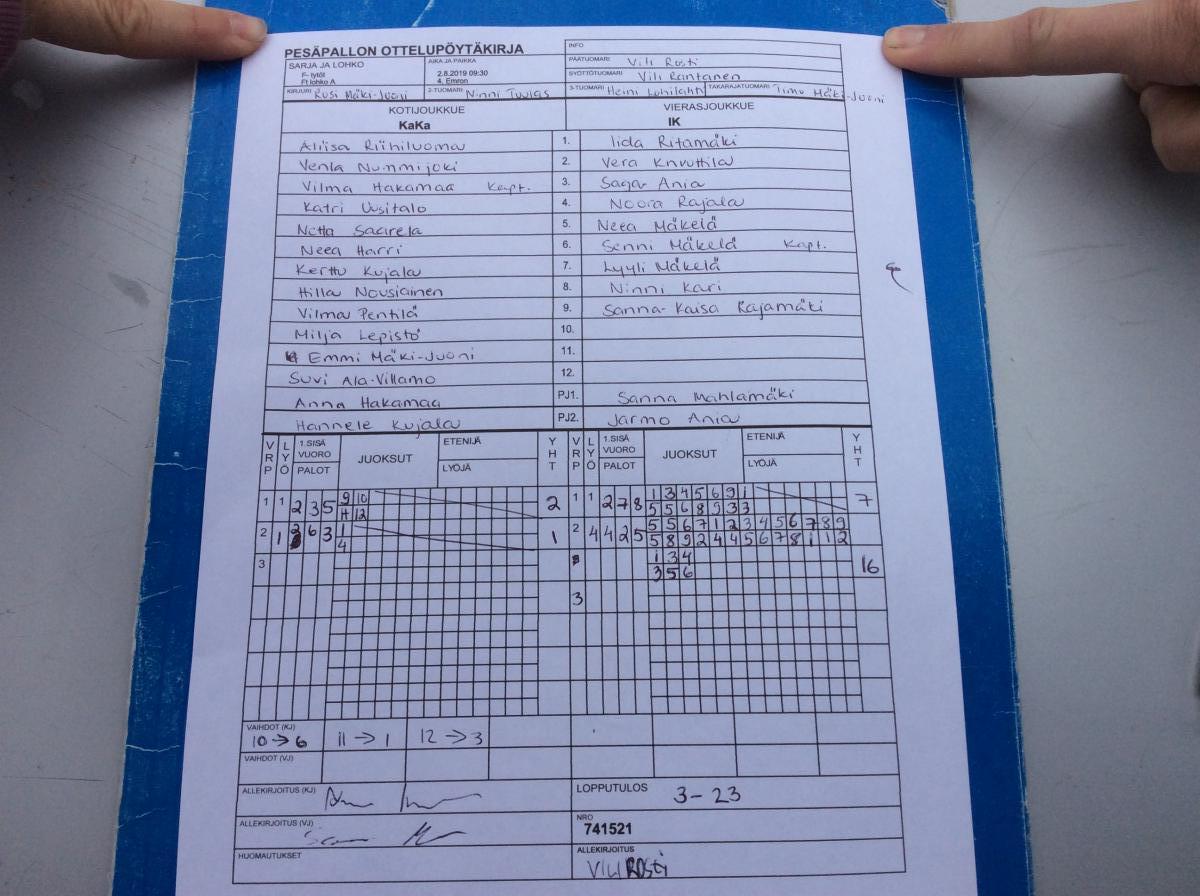 PESÄPALLON OTTELUPÖYTÄKIRJA
INFO
SARJA JA LOHKO
F- tytöt
Ft lohko A
AIKA JA PAIKKA
2.8.2019 09:30
4. Emron
PÄÄTUOMARI Vili Rosti
SYÖTTÖTUOMARI Vili Rantanen
KIRJURI Susi Mäki-Juoni 2-TUOMARI Ninni Tuulas 3-TUOMARI Heini Luhilahti TAKARAJATUOMARI Timo Mäki-Juoni
KOTIJOUKKUE VIERASJOUKKUE
KaKa IK
Aliisa Riihiluoma 1. Iida Ritamäki
Venla Nummijoki 2. Vera Knuuttila
Vilma Hakamaa Kapt. 3. Saga Ania
Katri Uusitalo 4. Noora Rajala
Netta Saarela 5. Neea Mäkelä
Neea Harri 6. Senni Mäkelä Kapt.
Kerttu Kujala 7. Lyyli Mäkelä
Hilla Nousiainen 8. Ninni Kari
Vilma Penttilä 9. Sanna-Kaisa Rajamäki
Milja Lepistö 10.
Emmi Mäki-Juoni 11.
Suvi Ala-Villamo 12.
Anna Hakamaa PJ1. Sanna Mahlamäki
Hannele Kujala PJ2. Jarmo Ania
VRP LYÖ 1.SISÄ VUORO PALOT JUOKSUT ETENIJÄ LYÖJÄ YHT VRP LYÖ 1.SISÄ VUORO PALOT JUOKSUT ETENIJÄ LYÖJÄ YHT
1 1 2 3 5 9 10 2 1 1 2 7 8 1 3 4 5 6 9 1 7
11 12 5 5 6 8 9 3 3
2 1 2 6 3 1 1 2 4 4 2 5 5 5 6 7 1 2 3 4 5 6 7 8 9
4 5 8 9 2 4 4 5 6 7 8 1 1 2
3 1 3 4 16
3 5 6
3
VAIHDOT (KJ)
10 → 6 11 → 1 12 → 3
VAIHDOT (VJ)
ALLEKIRJOITUS (KJ) LOPPUTULOS 3 - 23
ALLEKIRJOITUS (VJ) NRO
741521
HUOMAUTUKSET ALLEKIRJOITUS
Vili Rosti